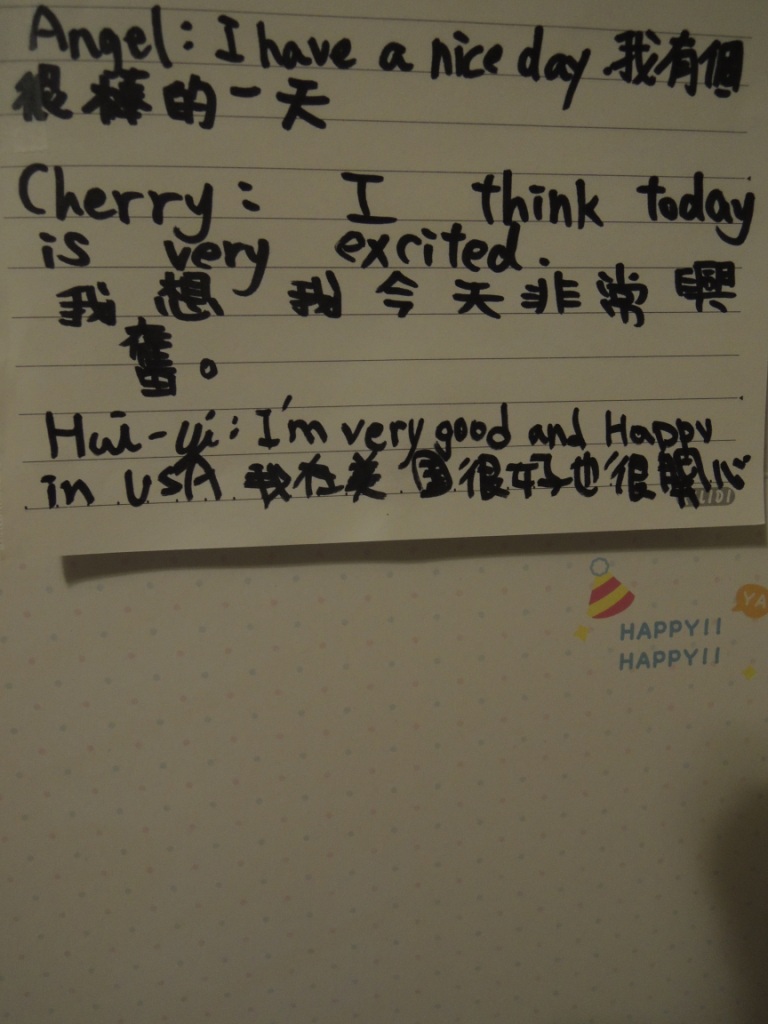 Angel: I have a nice day 我有個
很棒的一天
Cherry: I think today
is very excited.
我想我今天非常興
奮。
Hui-yi: I'm very good and Happy
in USA 我在美國很好也很開心
YA
HAPPY!!
HAPPY!!